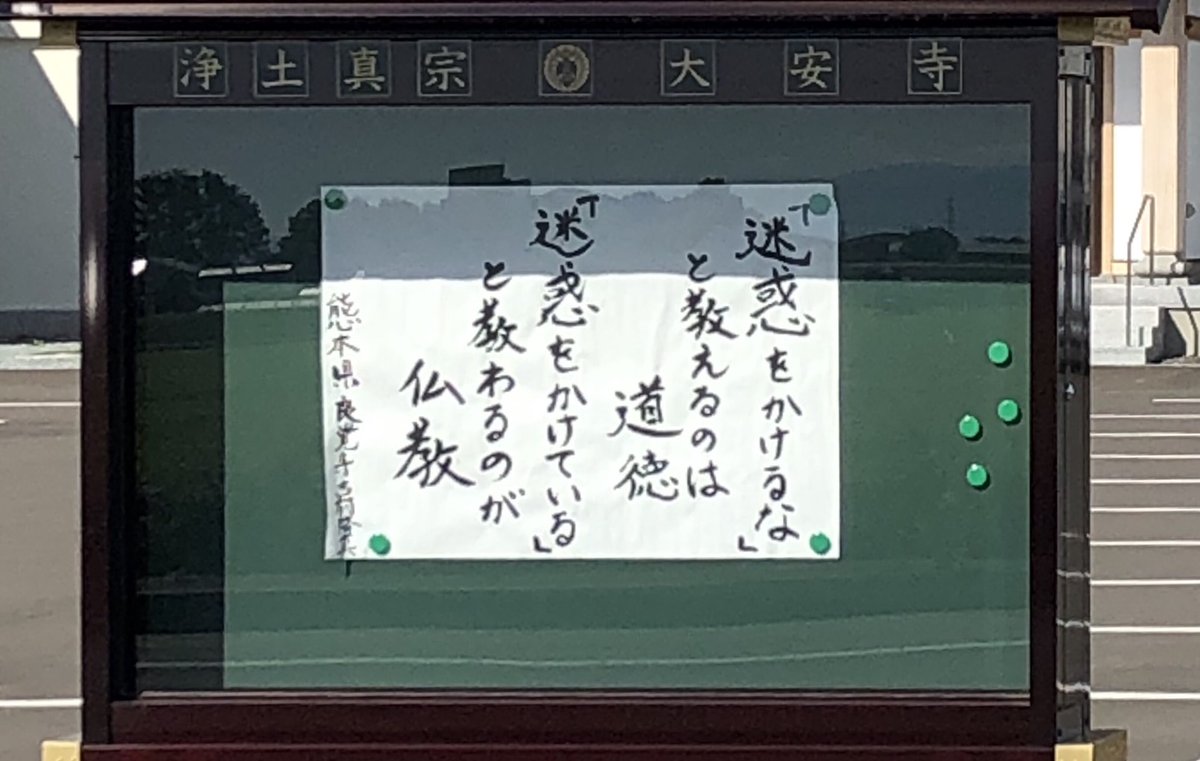 浄土真宗 大安寺
「迷惑をかけるな」
と教えるのは
道徳
「迷惑をかけている」
と教わるのが
仏教
熊本県 良覚寺